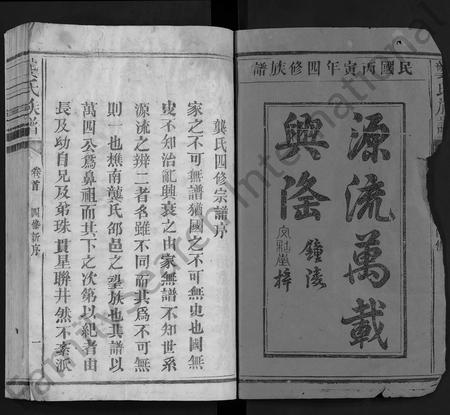 民國丙寅年四修族譜
源流萬載
興隆
鐘陵
梓
龔氏四修宗譜序
家之不可無譜猶國之不可無史也國無
史不知治亂興衰之由家無譜不知世系
源流之辯二者名雖不同而其爲不可無
則一也樵南龔氏邵邑之望族也其譜以
萬四公爲鼻祖而其下之次第以紀者由
長及幼自兄及弟珠貫星聯井然不紊派
龔氏族譜
卷首
四修新序
一